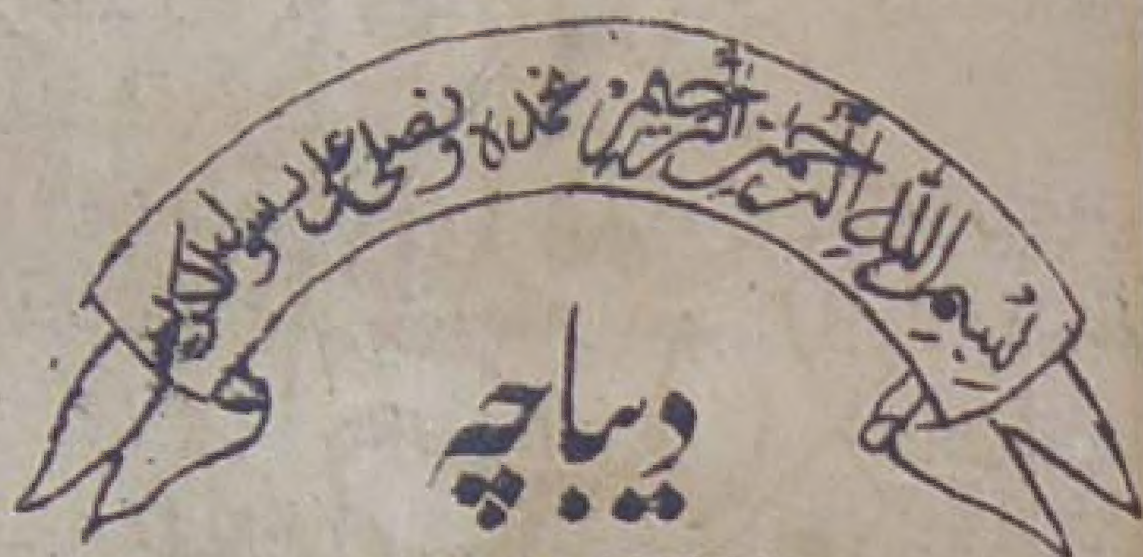 بسم الله الرحمن الرحيم نحمده ونصلی علی رسوله الکریم
دیباچہ